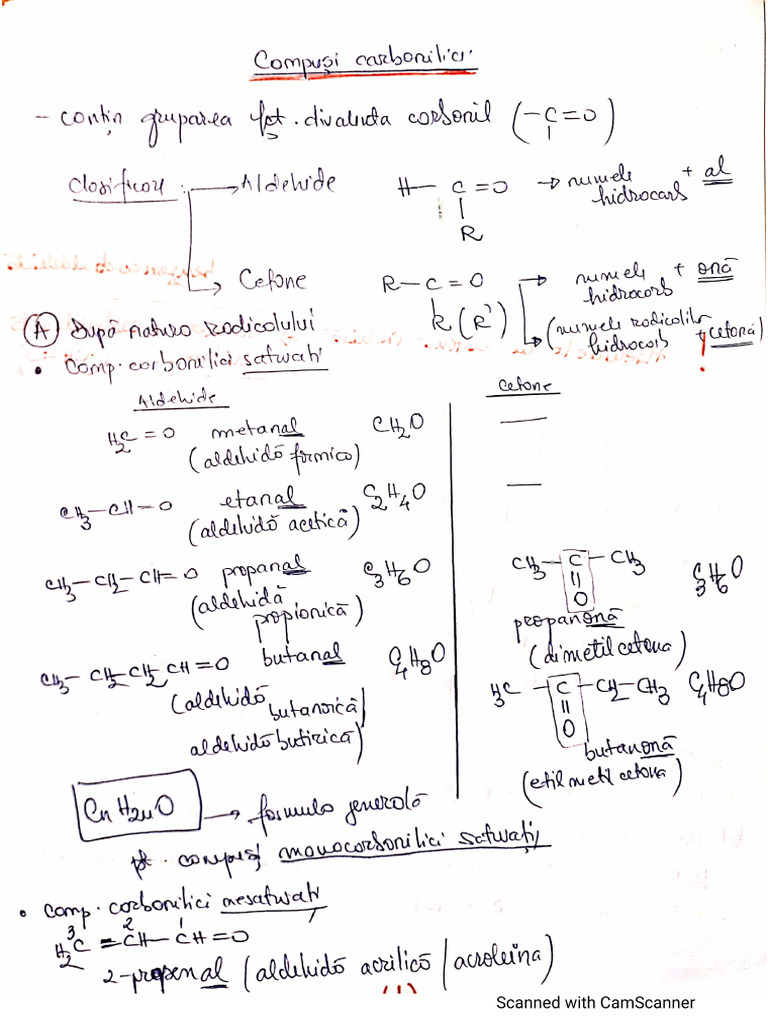 Compuși carbonilici
- conțin gruparea fct. divalenta carbonil (-C=O)
Clasificare: → Aldehide H-C=O → numele hidrocarb + al
R
→ Cetone R-C=O → numele hidrocarb + onă
R(R') → (numele radicalilor hidrocarb + cetonă)
(A) După natura radicalului
• Comp. carbonilici saturati
Aldehide
Cetone
H2C=O metanal CH2O
(aldehidă formica)
CH3-CH=O etanal C2H4O
(aldehidă acetică)
CH3-CH2-CH=O propanal C3H6O
(aldehidă propionică)
CH3-CH2-CH2-CH=O butanal C4H8O
(aldehidă butanoică)
aldehidă butirică)
CH3-C-CH3 C3H6O
||
O
propanonă
(dimetil cetona)
H3C-C-CH2-CH3 C4H8O
||
O
butanonă
(etil metil cetona)
CnH2nO → formula generolă
pt. compuși monocarbonilici saturați
• Comp. carbonilici nesaturati
3 2 1
H2C=CH-CH=O
2-propenal (aldehidă acrilică / acroleina)
Scanned with CamScanner